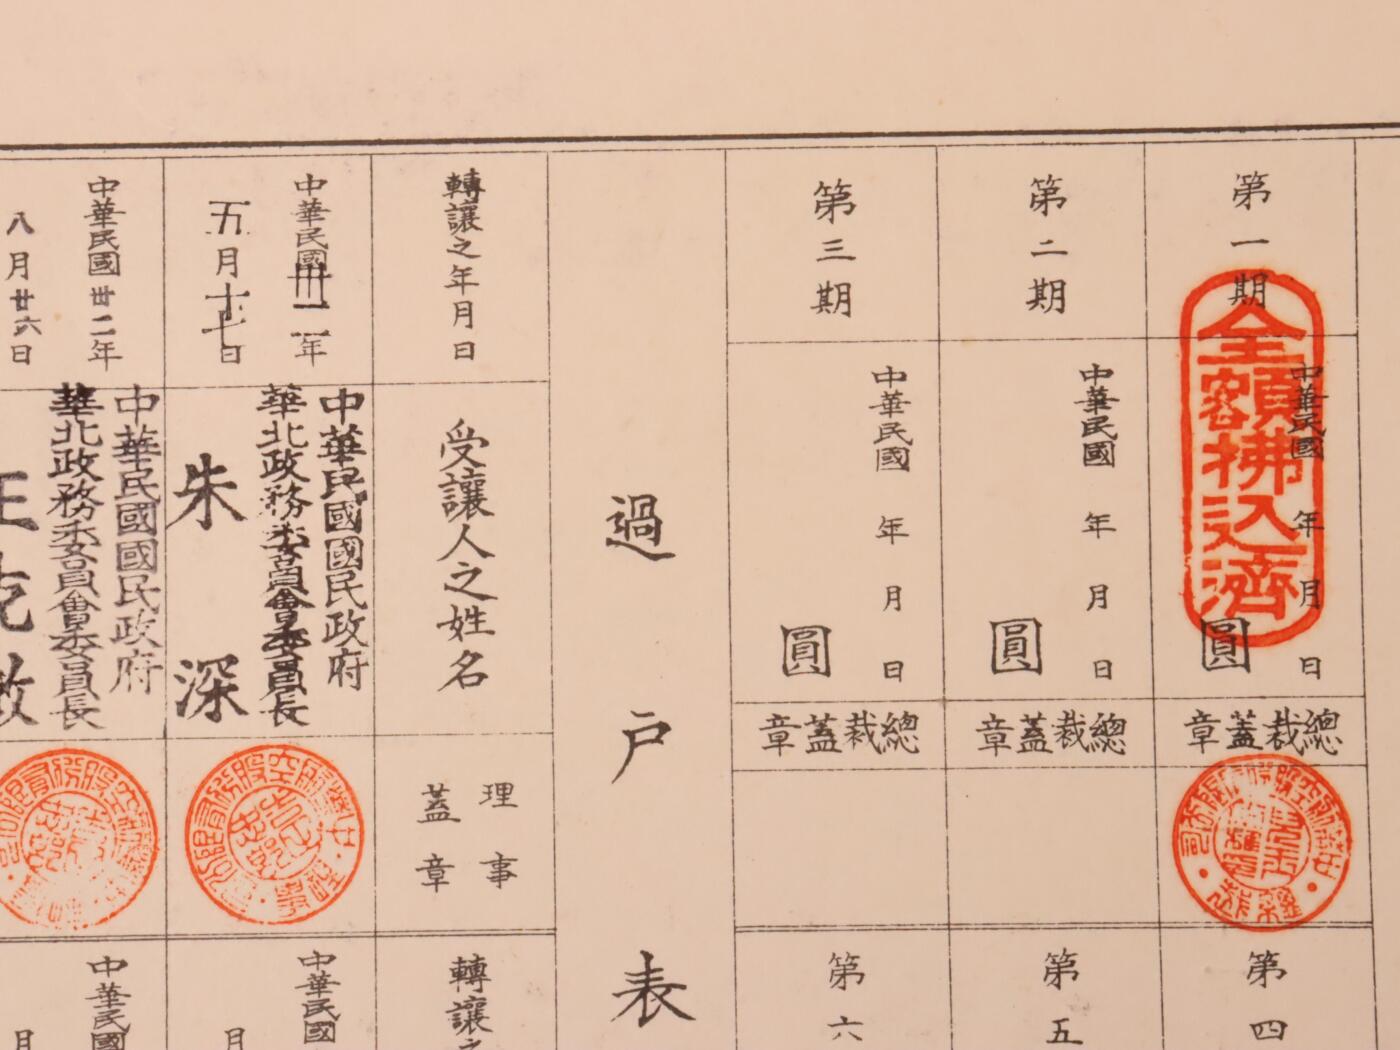 第一期
中華民國 年 月 日
圓
全額拂込濟
總裁蓋章
第二期
中華民國 年 月 日
圓
總裁蓋章
第三期
中華民國 年 月 日
圓
總裁蓋章
第四
第五
第六
過戶表
轉讓之年月日
受讓人之姓名
理事
蓋章
轉讓之
中華民國卅二年
五月十七日
中華民國國民政府
華北政務委員會委員長
朱深
中華民國
月
中華民國卅二年
八月廿六日
中華民國國民政府
華北政務委員會委員長
王克敏
中華民國
月